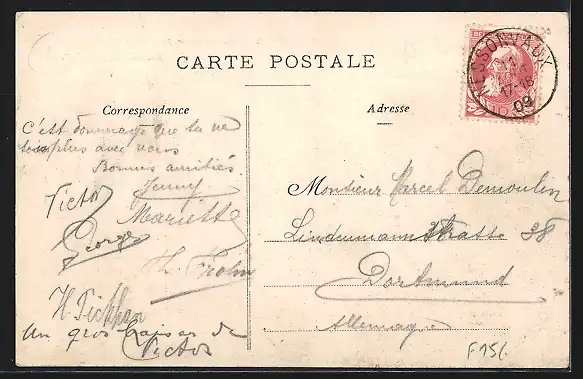 CARTE POSTALE
Correspondance
Adresse
C'est dommage que tu ne
sois plus avec nous
Bonnes amitiés.
Jenny
Victor
Mariette
George
H.
H.
Un gros baiser de
Victor
Monsieur Marcel Demoulin
Lindemannstrasse 38
Dortmund
Allemagne
11
17-18
09
F156